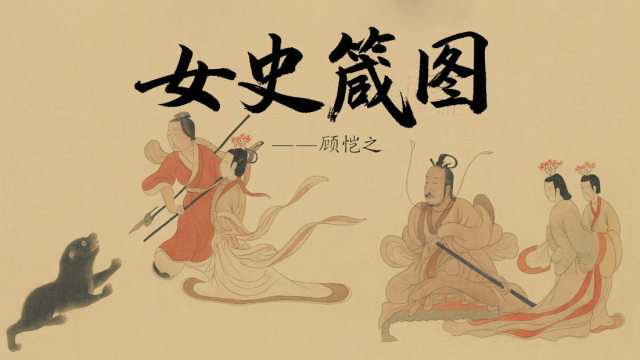 女史箴图
——顾恺之